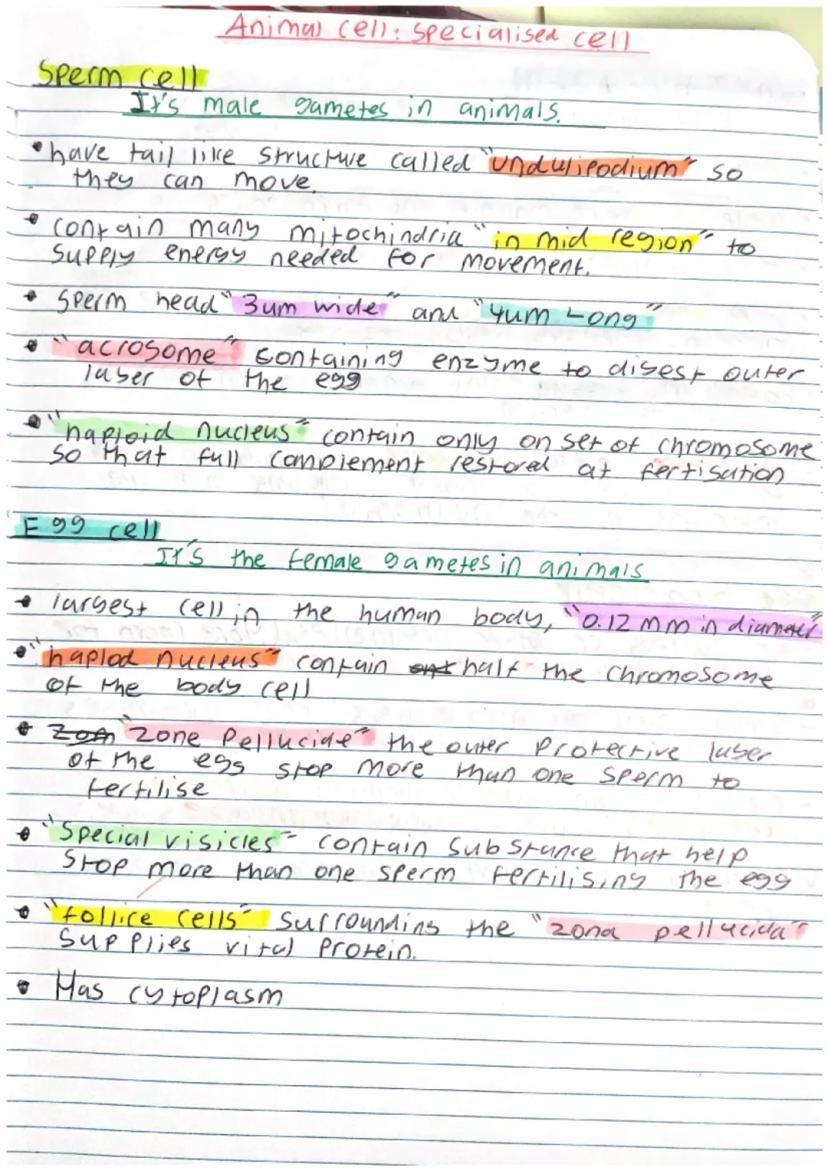 Animal cell: specialised cell
Sperm cell
It's male gametes in animals.
• have tail like structure called "undulipodium" so
they can move.
• contain many mitochindria "in mid region" to
supply energy needed for movement.
• sperm head "3um wide" and "4um Long"
• "acrosome" containing enzyme to digest outer
layer of the egg
• "haploid nucleus" contain only on set of chromosome
so that full complement restored at fertisation
Egg cell
It's the female gametes in animals
• largest cell in the human body, "0.12 mm in diameter"
• "haplod nucleus" contain half the chromosome
of the body cell
• "zone Pellucide" the outer Protective layer
of the egg stop more than one sperm to
fertilise
• "Special visicles" contain substance that help
stop more than one sperm fertilising the egg
• "follice cells" surrounding the "zona pellucida"
supplies vital protein.
• Has cytoplasm